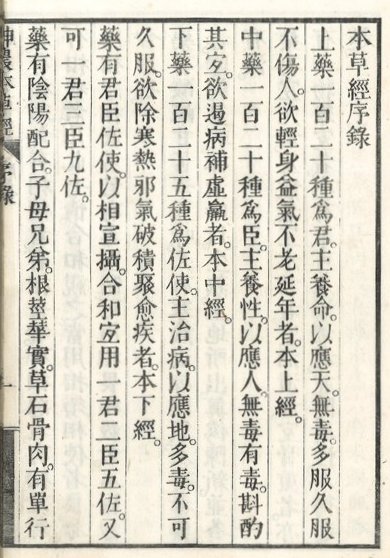 本草經序錄
上藥一百二十種爲君。主養命。以應天。無毒。多服久服
不傷人。欲輕身益氣不老延年者。本上經。
中藥一百二十種爲臣。主養性。以應人。無毒有毒。斟酌
其宐。欲遏病補虛羸者。本中經。
下藥一百二十五種爲佐使。主治病。以應地。多毒。不可
久服。欲除寒熱邪氣破積聚愈疾者。本下經。
藥有君臣佐使。以相宣攝。合和宐用一君二臣五佐。又
可一君三臣九佐。
藥有陰陽配合。子母兄弟。根莖華實。草石骨肉。有單行
神農本草經 序錄 一